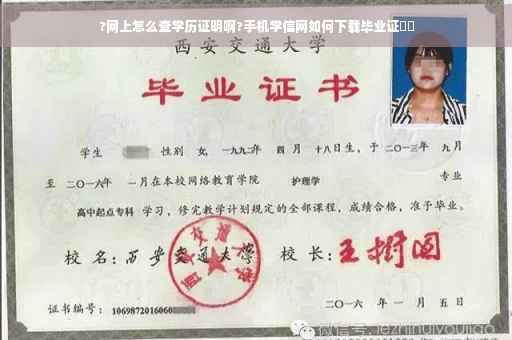 ?网上怎么查学历证明啊?手机学信网如何下载毕业证
西安交通大学
毕业证书
学生 性别 女, 一九九二年 四月 十八日生, 于 二〇一三年 九月
至 二〇一六年 一月在本校网络教育学院 护理学 专业
高中起点专科 学习, 修完教学计划规定的全部课程, 成绩合格, 准予毕业。
校名: 西安交通大学 校长: 王树国
西安交通大学
证书编号: 1069872016060
二〇一六 年 一 月 五 日
微信号: lezhihuiyoujiao